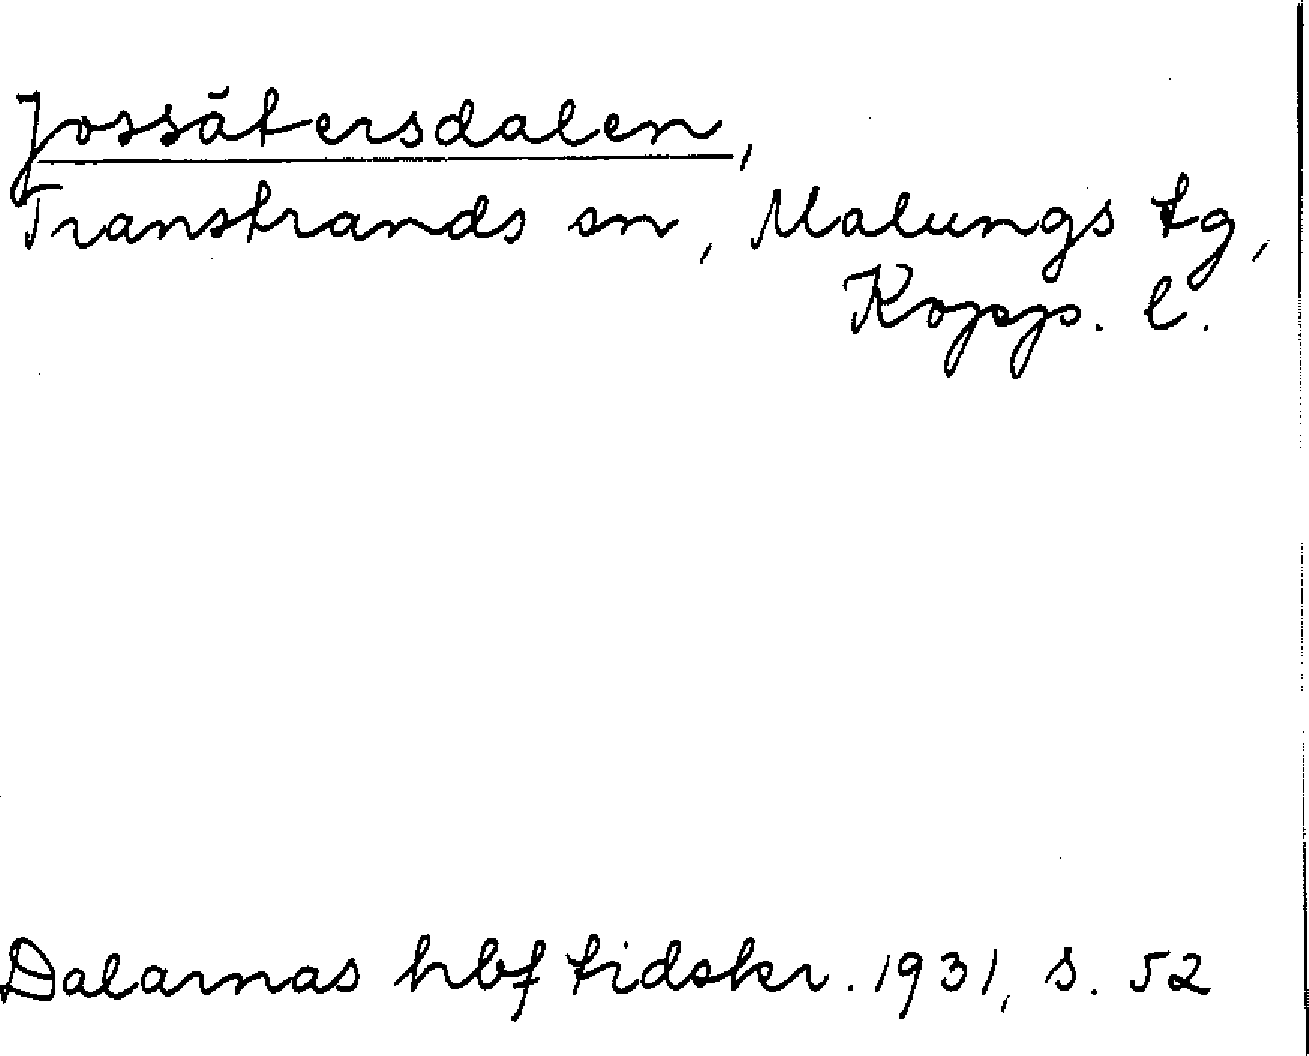 Jossätersdalen,
Transtrands sn, Malungs tg,
Kopp. l.
Dalarnas hbf tidskr. 1931, s. 52